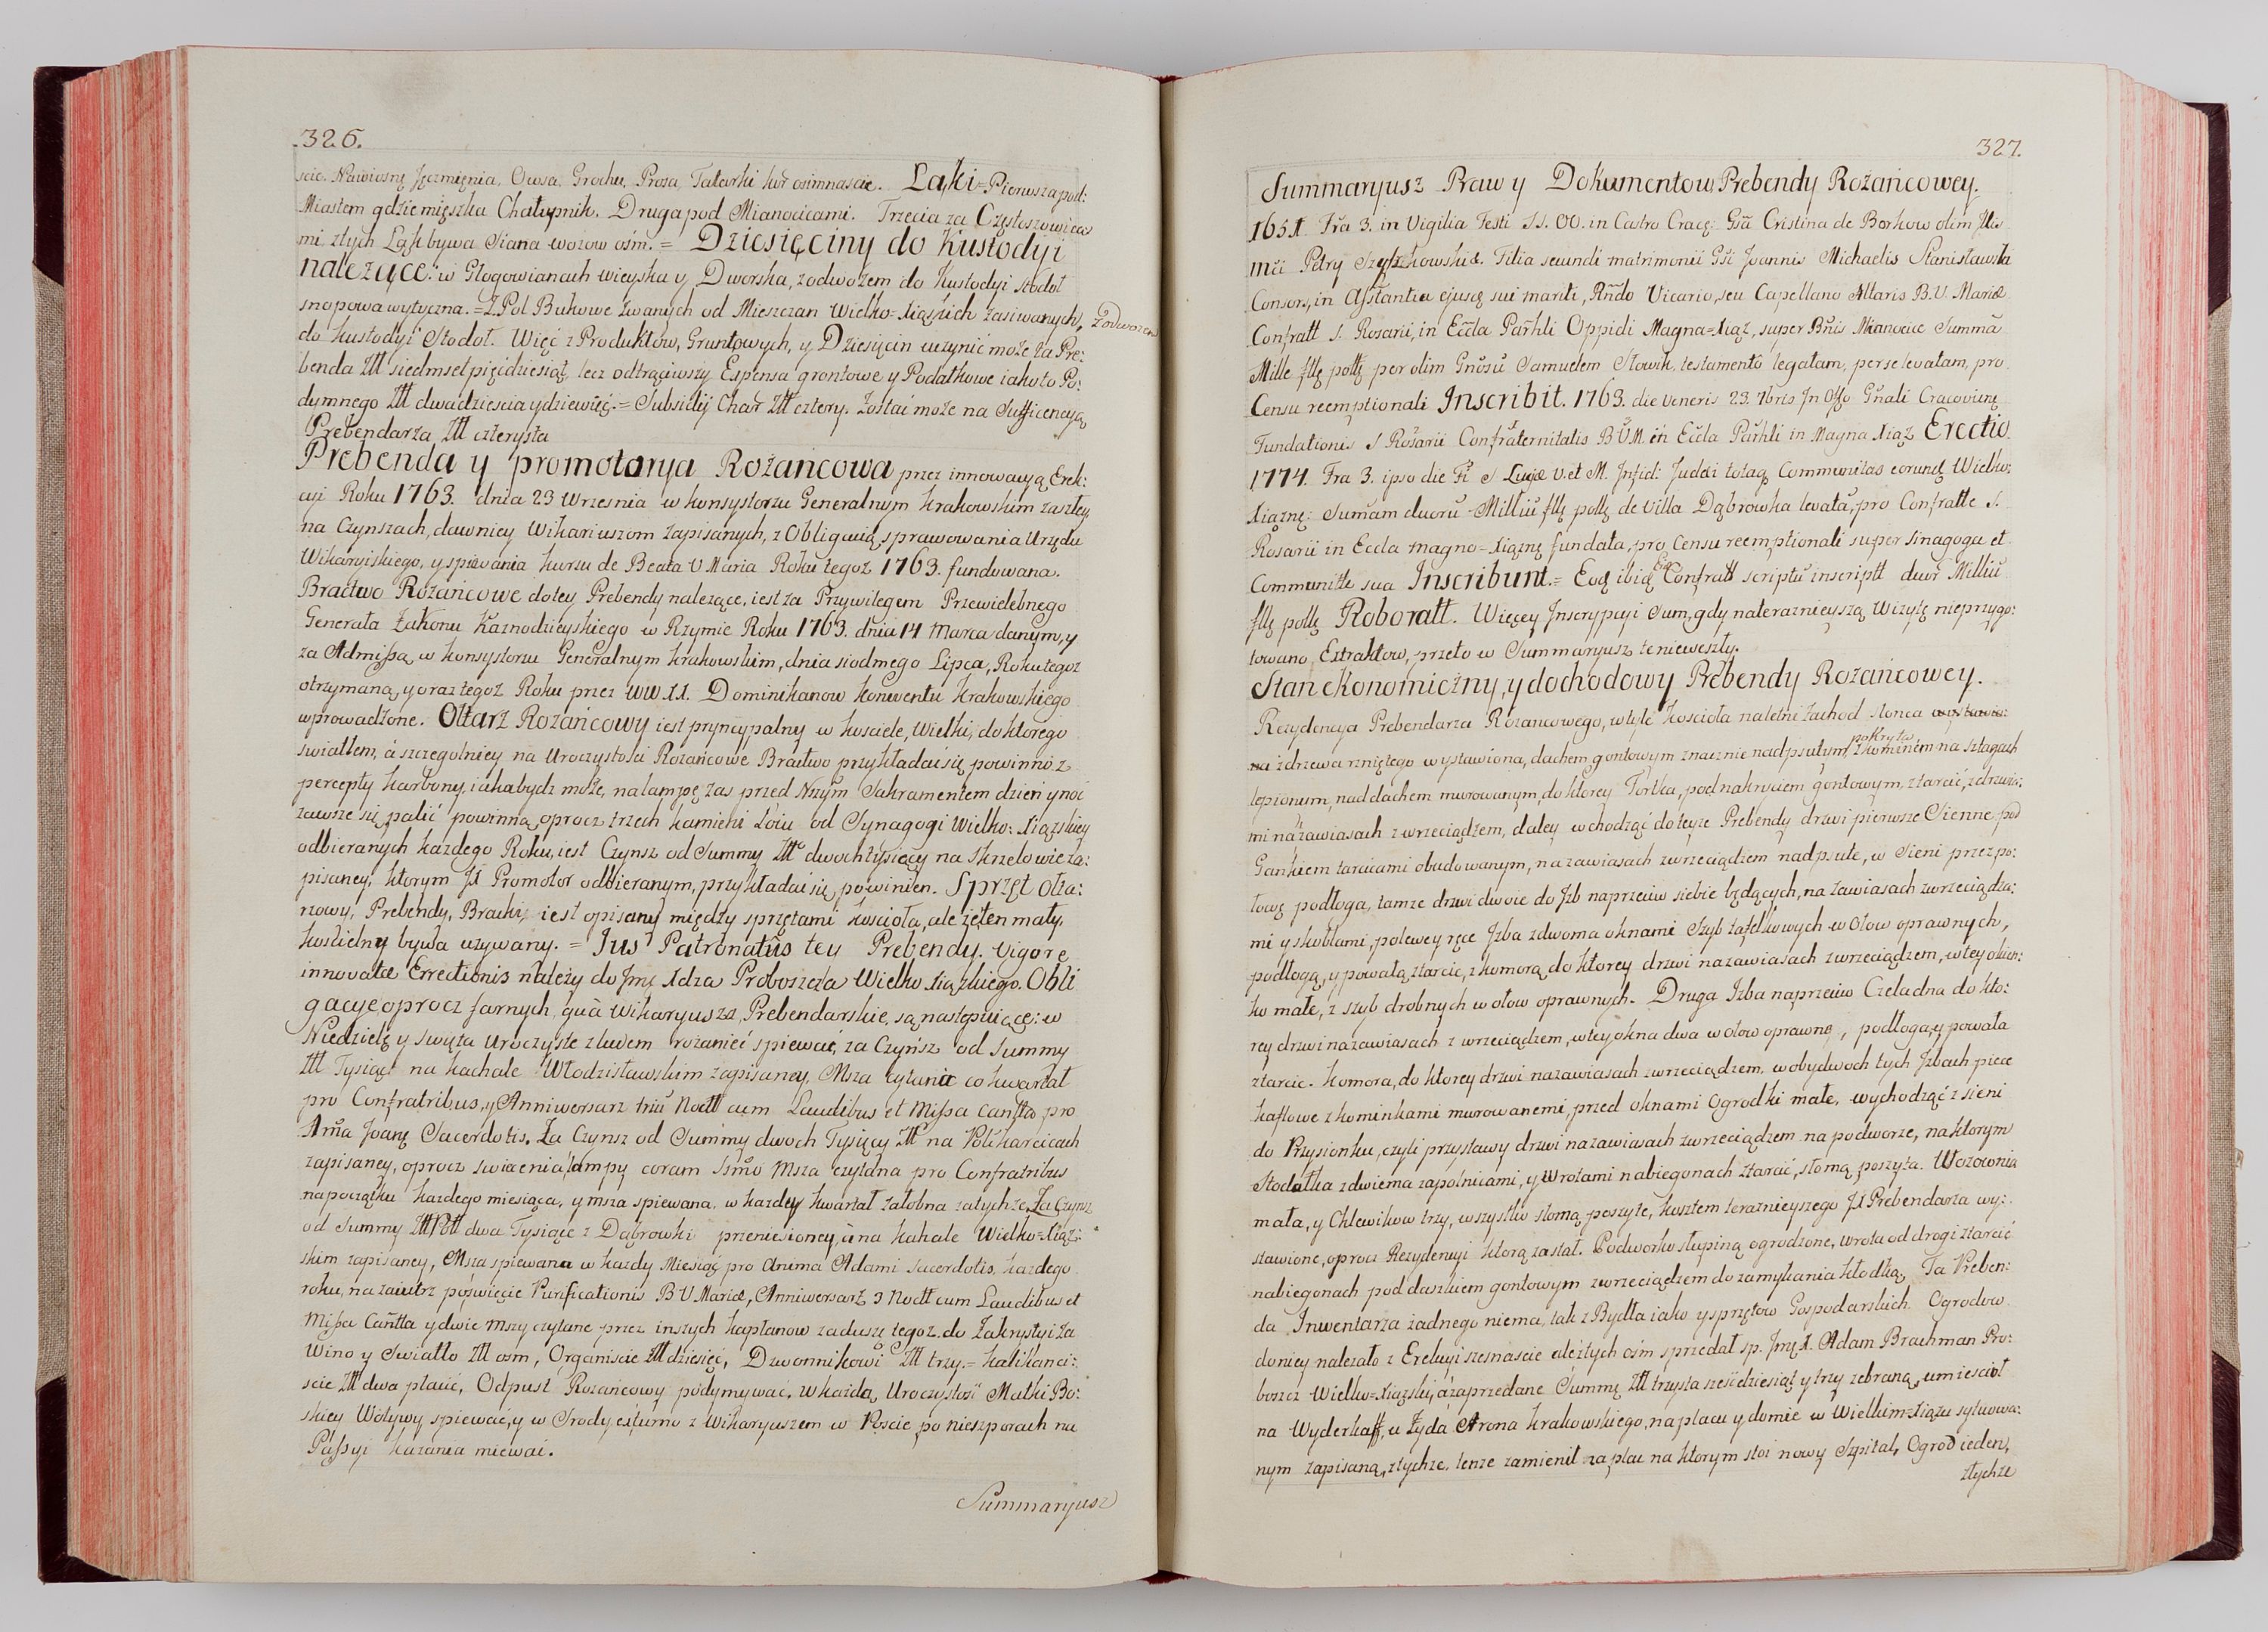 326.
scie. Nawiosnę Jęczmięnia, Owsa, Grochu, Prosa, Tatarki kur osimnascie. Łąki = Pierwsza pod:
Miastem gdzie mięszka Chałupnik. Druga pod Mianocicami. Trzecia za Częstoszowica
mi, z tych Łąk bywa Siana wozow ośm. = Dziesięciny do Kustodyi
należące: w Głogowianach wieyska y Dworska, z odwozem do Kustodyi stodoł
snopowa wytyczna. = Z Pol Bukowe zwanych od Mieszczan Wielko=Xiąskich zasiwanych, z odwozem
do kustodyi Stodoł. Więć z Produktów, Gruntowych, y Dziesięcin uczynic może ta Pre:
benda Złł siedmset pięidziesiąt, lecz odtrąciwszy Expensa grontowe y Podatkowe iako to Po:
dymnego Złł dwadziescia y dziewięć. = Subsidij Char Złł cztery. Zostać może na Sufficencyą
Prebendarza Złł czterysta
Prebenda y promotorya Rożańcowa przez innowacyą Erek:
cyi Roku 1763. dnia 23 Wrzesnia w konsystorzu Generalnym Krakowskim zaszłey,
na Czynszach, dawniey Wikariuszom zapisanych, z Obligacią sprawowania Urzędu
Wikaryiskiego, y spiewania kursu de Beata V Maria Roku tegoż 1763. fundowana.
Bractwo Rożańcowe do tey Prebendy nalezące, iest za Przywilegem Przewielebnego
Generała Zakonu Kaznodzieyskiego w Rzymie Roku 1763. dnia 14 Marca danym, y
za Admissą w konsystorzu Generalnym Krakowskim, dnia siodmego Lipca, Roku tegoz
otrzymaną, y oraz tegoż Roku przez WW. XX. Dominikanow konwentu Krakowskiego
wprowadzone. Ołtarz Rozańcowy iest pryncypalny w kosciele, Wielki, do ktorego
swiatłem, á szczegolniey na Uroczystości Rożańcowe Bractwo przykładać się powinno z
percepty karbony, iaka bydz może, na lampę zas przed Nszym Sakramentem dzień y noć
zawsze się palić powinną, oprocz trzech kamieni Łoiu od Synagogi Wielko=Xiąskiey
odbieranych kazdego Roku, iest Czynsz od Summy Złł dwoch tysięcy na Skrzelowie za:
pisaney, ktorym JX Promotor odbieranym, przykładać się powinien. Sprzęt Ołta:
rzowy, Prebendy, Bracki, iest opisany między sprzętami kosciola, ale że ten mały,
koscielny bywa uzywany. = Jus Patronatus tey Prebendy. Vigore
innovatæ Errectionis należy do Jmę Xdza Proboszcza Wielko Xiązkiego. Obli
gacye oprocz farnych, quà Wikaryusza, Prebendarskie, są następuiące: w
Niedzielę y swięta Uroczyste z ludem rożaniec spiewać, za Czynsz od Summy
Złł Tysiąc na kachale Włodzisławskim zapisaney, Msza cytanie co kwartał
pro Confratribus, y Anniwersarz triu Noctt cum Laudibus et Missa Cantta pro
Ama Joanę Sacerdotis. Za Czynsz od Summy dwoch Tysięcy Złł na Polikarcicach
zapisaney, oprocz swiecenia lampy coram SSmo Msza czytana pro Confratribus
na początku każdego miesiąca, y msza spiewana, w kazdey kwartał załobna za tychże, Za Czynsz
od Summy Złł Poll dwa Tysiące z Dąbrowki przeniesioney, á na kahale Wielko=Xiąz:
skim zapisaney, Msza spiewana w każdy Miesiąc pro Anima Adami Sacerdotis. każdego
roku, na zaiutrz poswięcie Purificationis B V Mariæ, Anniwersarz 3 Noctt cum Laudibus et
Missa Cantta y dwie mszy czytane przez inszych kapłanow za duszę tegoż. do Zakrystyi za
Wino y Swiatło Złł osm, Organiscie Złł dziesięć, Dzwonnikowi Złł trzy. = kalikanci:
scie Złł dwa płacić, Odpust Rożańcowy podymywać, w każdą Uroczystość Matki Bo:
skiey Wotywy spiewać, y w Srody citurno z Wikaryuszem w Poscie po nieszporach na
Passyi kazania miewać.
Summaryusz
327.
Summaryusz Praw y Dokumentow Prebendy Rożańcowey.
1651. Fra 3. in Vigilia Festi SS. OO. in Castro Cracę: Gsa Cristina de Borkow olim
mci Petry Szyszkowskie. Filia secundi matrimonii Gsi Joannis Michaelis Stanisławski
Consors, in Assstantia ejusq sui mariti, Rndo Vicario, seu Capellano Altaris B.V. Mariæ
Confratt S. Rosarii, in Eccla Parhli Oppidi Magna=Xiąz, super Bnis Mianocice Summa
Mille flę pollę per olim Gnosu Samuelem Słowik, testamento legatam, per se levatam, pro
Censu reemptionali Inscribit. 1763. die veneris 23. 7bris Jn Offo Gnali Cracoviens
Fundationis S Rosarii Confraternitatis BVM in Eccla Parhli in Magna Xiąz Erectio.
1774. Fra 3. ipso die Fi S Luciæ V. et M. Infidi Judæi totaq Communitas eorund Wielko:
Xiąznę: Sumam duoru Milliu flę pollę de villa Dąbrowka levata, pro Confratte S.
Rosarii in Eccla magno=Xiąznę fundata, pro Censu reemptionali super Sinagoga et
Communitte sua Inscribunt. = Eoq ibiq Confratt scriptu inscriptt duor Milliu
flę pollę Roboratt. Więcey Jnscrypcyi Sum, gdy na teraznieyszą Wizytę nieprzygo:
towano Extraktow, przeto w Summaryusz te nieweszły.
Stan ekonomiczny, y dochodowy Prebendy Rożańcowey.
Rezydencya Prebendarza Rozancowego, w tyle kosciola na letni Zachod słonca
z drzewa rzniętego wystawiona, dachem gontowym znacznie nadpsutym pokryta, z kominem na sztagach
lepionym, nad dachem murowanym, do ktorey Fortka, pod nakryciem gontowym, z tarcić, z drzwia:
mi na zawiasach z wrzeciądzem, daley wchodząć do teyże Prebendy drzwi pierwsze Sienne pod
Gankiem tarcicami obudowanym, na zawiasach z wrzeciądzem nadpsute, w Sieni przez po:
łowę podłoga, tamże drzwi dwoie do Jzb naprzeciw siebie będących, na zawiasach z wrzeciądza:
mi y skoblami, po lewey ręce Jzba z dwoma oknami Szyb tafelkowych w Ołow oprawnych,
podłogą, y powałą z tarcic, z komorą do ktorey drzwi na zawiasach z wrzeciądzem, w tey okien:
ko małe, z szyb drobnych w ołow oprawnych. Druga Jzba naprzeciw Czeladna do kto:
rey drzwi na zawiasach z wrzeciądzem, w tey okna dwa w ołow oprawne, podłoga y powała
z tarcic. komora, do ktorey drzwi na zawiasach z wrzeciądzem, w obydwoch tych Jzbach piece
kaflowe z kominkami murowanemi, przed oknami Ogrodki małe, wychodząć z sieni
do Przysionku, czyli przystawy drzwi na zawiasach z wrzeciądzem na podworze, na ktorym
Stodołka z dwiema zapolnicami, y Wrotami na biegonach z tarcić, słomą poszyta. Wozownia
mała, y Chlewikow trzy, wszystko słomą poszyte, kosztem teraznieyszego JX Prebendarza wy:
stawione, oprocz Rezydencyi ktorą zastał. Podworko słupiną ogrodzone, wrota od drogi z tarcić
na biegonach pod daszkiem gontowym z wrzeciądzem do zamykania kłodką, Ta Preben:
da Jnwentarza żadnego niema, tak z Bydła iako y sprzętow Gospodarskich. Ogrodow
doniey nalezało z Erekcyi szesnascie ale z tych ośm sprzedał sp. Jmę X. Adam Brachman Pro:
boszcz Wielko=Xiązski, á zaprzedane Summę Złł trzysta sześćdziesiąt y trzy zebraną, umiescił
na Wyderkaff, u Żyda Arona krakowskiego, na placu y domie w Wielkim=Xiązu sytuowa:
nym zapisaną, z tychże, tenże zamienił za plac na ktorym stoi nowy Szpital, Ogrod ieden,
z tychże